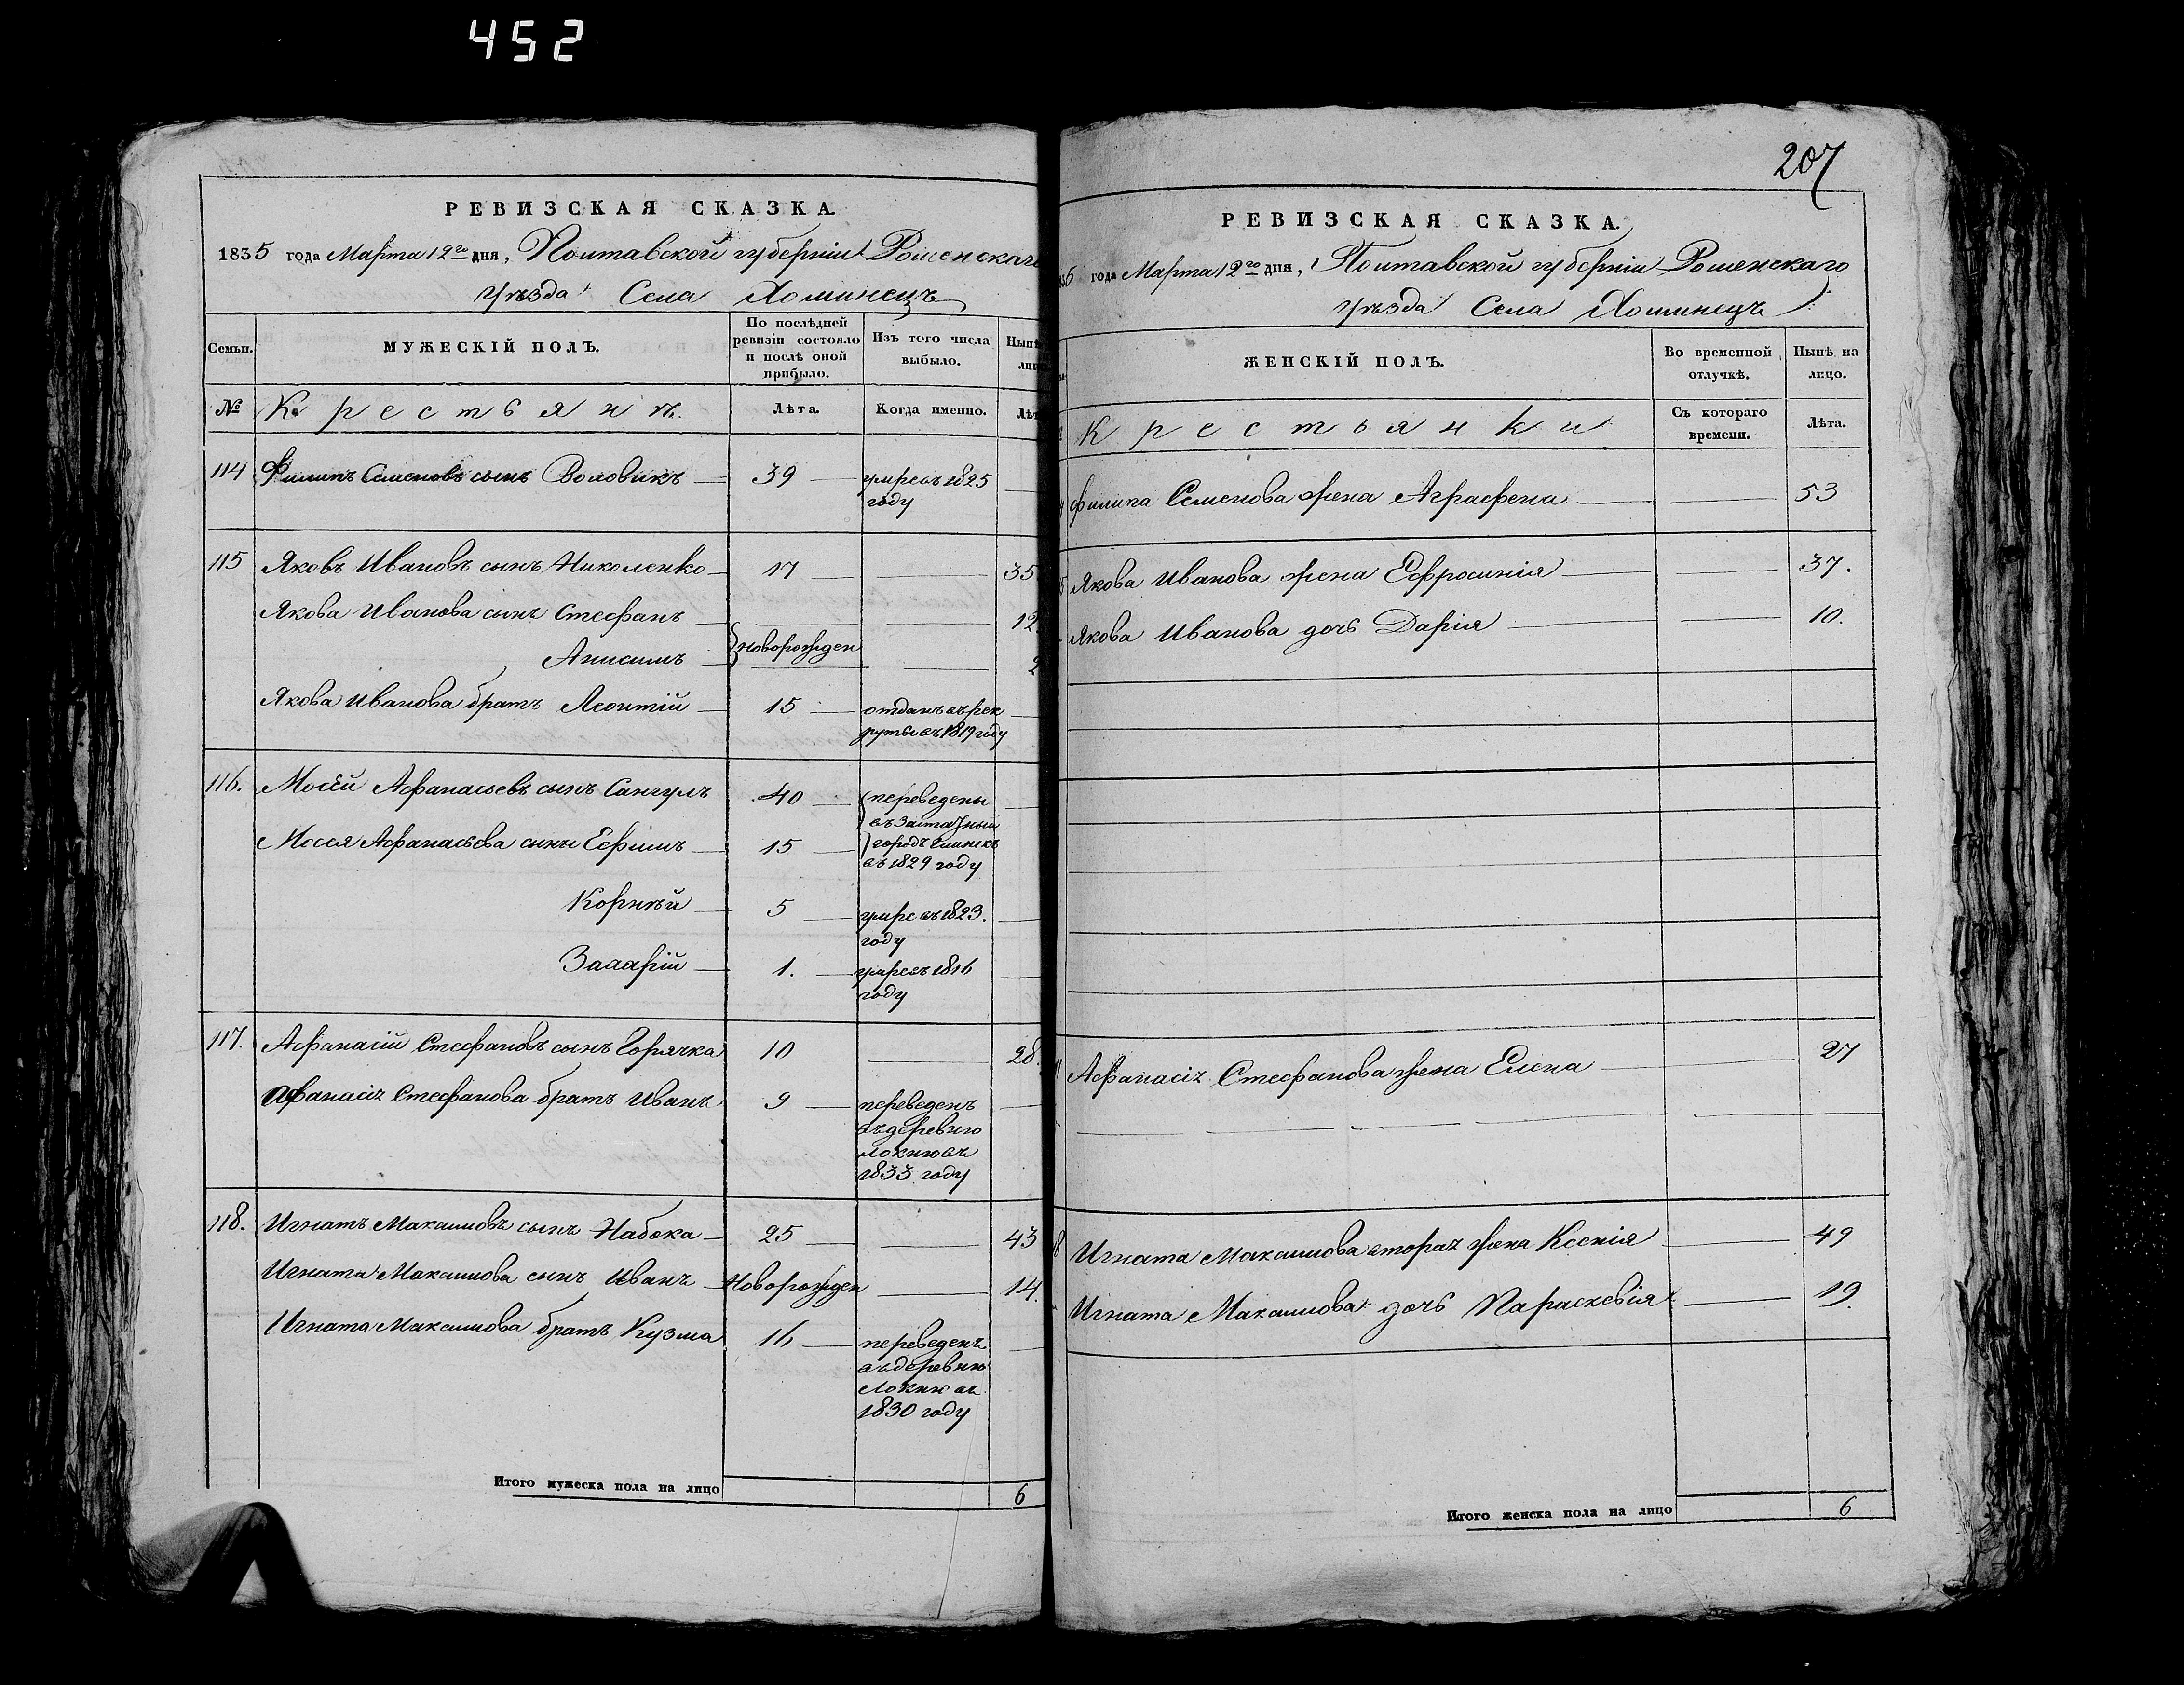 452
РЕВИЗСКАЯ СКАЗКА.
1835 года Марта 12го дня, Полтавской губерніи Роменскаго
уѣзда Села Хоминецъ
Семьи.
МУЖЕСКІЙ ПОЛЪ.
По послѣдней
ревизіи состояло
и послѣ оной
прибыло.
Изъ того числа
выбыло.
Нынѣ
лиц
№
Крестьянъ.
Лѣта.
Когда именно.
Лѣт
114 Филипъ Семеновъ сынъ Воловикъ 39 умре въ 1825
году
115 Яковъ Ивановъ сынъ Николенко 17 35
Якова Иванова сынъ Стефанъ 12
Анисимъ новорожден 2
Якова Иванова братъ Леонтій 15 отданъ въ рек
руты въ 1819 году
116. Мосей Афанасьевъ сынъ Сангулъ 40 переведены
въ заштатный
Мосея Афанасьева сынъ Ефимъ 15 городъ Глинскъ
въ 1829 году
Корнѣй 5 умре въ 1823.
году
Захарій 1. умре въ 1816
году
117. Афанасій Стефановъ сынъ Горячка 10 28.
Афанасія Стефанова братъ Иванъ 9 переведенъ
въ деревню
Локню въ
1833 году
118. Игнатъ Максимовъ сынъ Набока 25 43
Игната Максимова сынъ Иванъ Новорожден 14.
Игната Максимова братъ Кузма 16 переведенъ
въ деревню
Локню въ
1830 году
Итого мужеска пола на лицо 6
207
РЕВИЗСКАЯ СКАЗКА.
35 года Марта 12го дня, Полтавской губерніи Роменскаго
уѣзда Села Хоминецъ
ЖЕНСКІЙ ПОЛЪ.
Во временной
отлучкѣ.
Нынѣ на
лицо.
Крестьянки
Съ котораго
времени.
Лѣта.
Филипа Семенова жена Аграфена 53
5 Якова Иванова жена Ефросинія 37.
Якова Иванова дочь Дарія 10.
Афанасія Стефанова жена Елена 27
8 Игната Максимова вторая жена Ксенія 49
Игната Максимова дочь Параскевія 19.
Итого женска пола на лицо 6